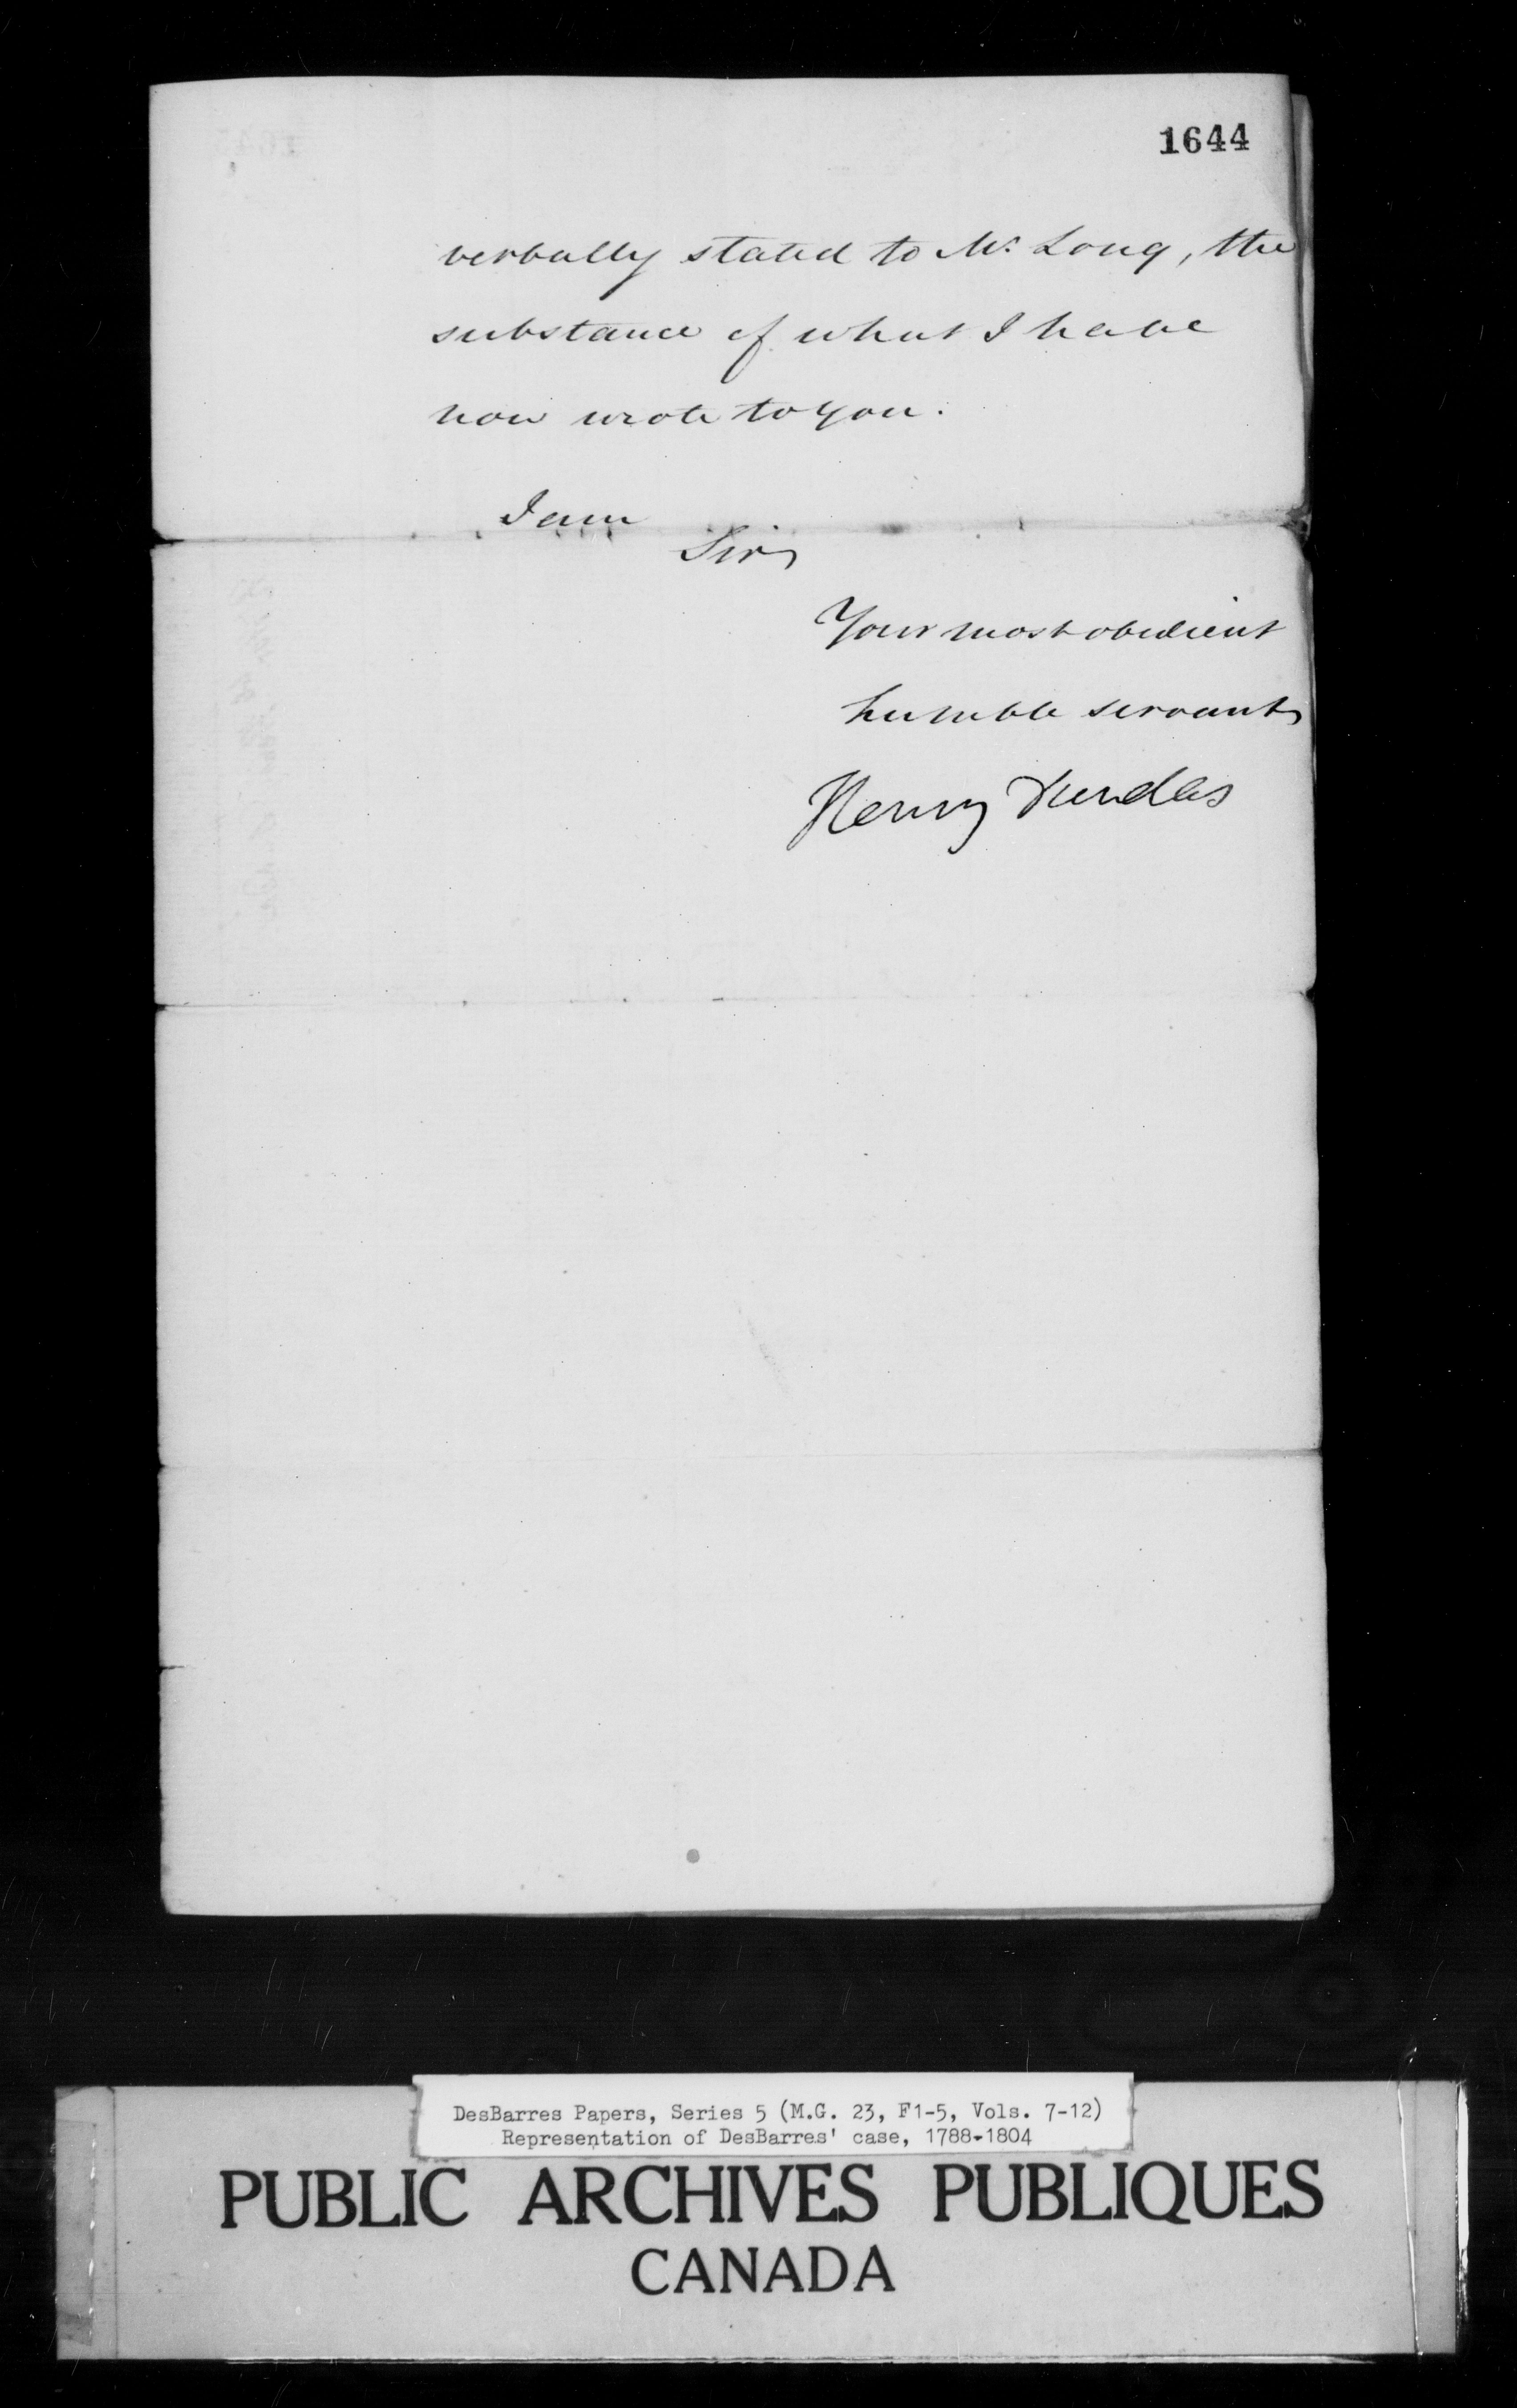 1644
verbally stated to Mr. Long, the
substance of what I have
now wrote to you.
I am
Sir,
Your most obedient
humble servant,
Henry Dundas
DesBarres Papers, Series 5 (M.G. 23, F1-5, Vols. 7-12)
Representation of DesBarres' case, 1788-1804
PUBLIC ARCHIVES PUBLIQUES
CANADA